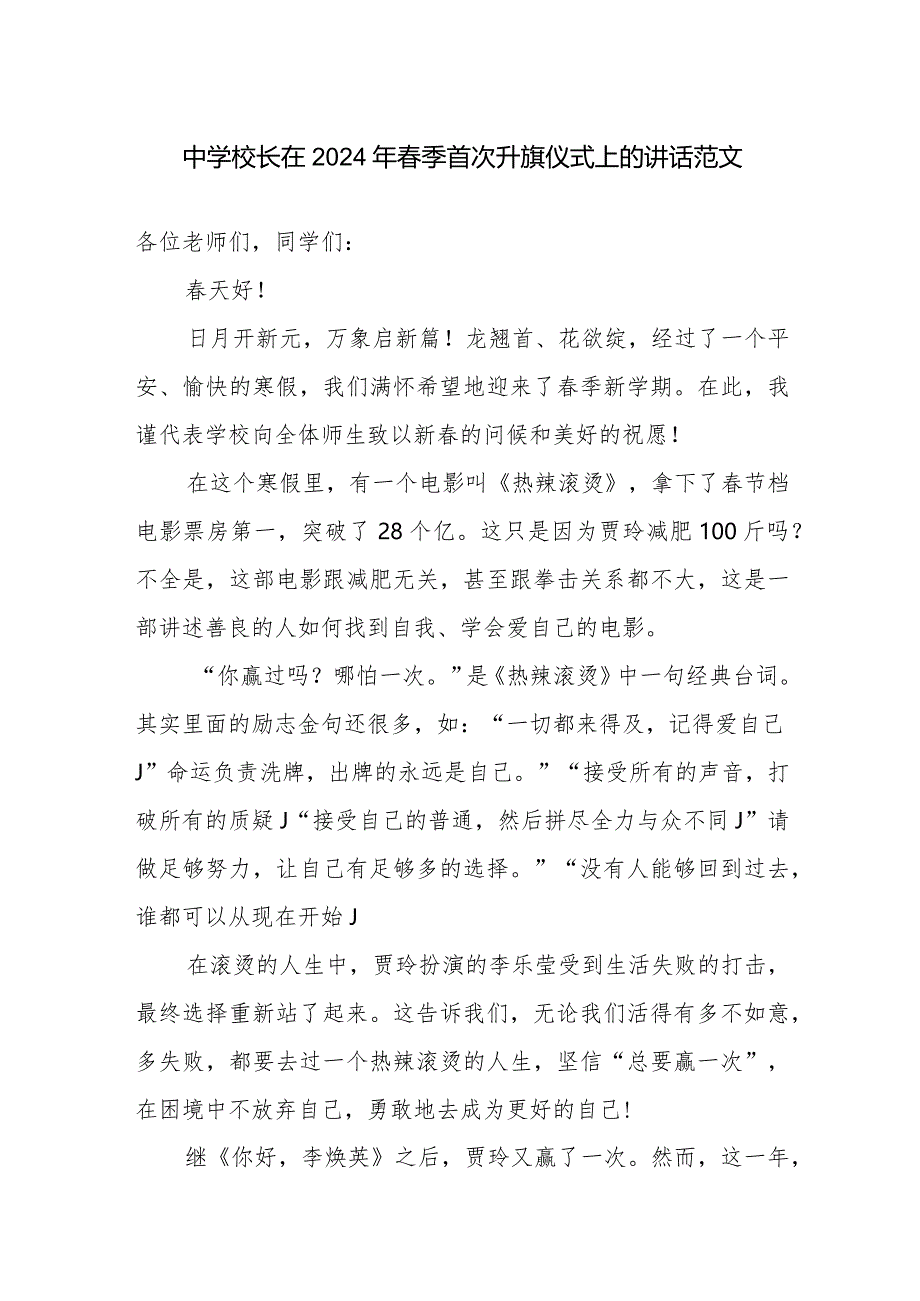 中学校长在 2024 年春季首次升旗仪式上的讲话范文
各位老师们，同学们：
春天好！
日月开新元，万象启新篇！龙翘首、花欲绽，经过了一个平
安、愉快的寒假，我们满怀希望地迎来了春季新学期。在此，我
谨代表学校向全体师生致以新春的问候和美好的祝愿！
在这个寒假里，有一个电影叫《热辣滚烫》，拿下了春节档
电影票房第一，突破了 28 个亿。这只是因为贾玲减肥 100 斤吗？
不全是，这部电影跟减肥无关，甚至跟拳击关系都不大，这是一
部讲述善良的人如何找到自我、学会爱自己的电影。
“你赢过吗？哪怕一次。”是《热辣滚烫》中一句经典台词。
其实里面的励志金句还很多，如：“一切都来得及，记得爱自己
J”命运负责洗牌，出牌的永远是自己。”“接受所有的声音，打
破所有的质疑 J“接受自己的普通，然后拼尽全力与众不同 J”请
做足够努力，让自己有足够多的选择。”“没有人能够回到过去，
谁都可以从现在开始 J
在滚烫的人生中，贾玲扮演的李乐莹受到生活失败的打击，
最终选择重新站了起来。这告诉我们，无论我们活得有多不如意，
多失败，都要去过一个热辣滚烫的人生，坚信“总要赢一次”，
在困境中不放弃自己，勇敢地去成为更好的自己!
继《你好，李焕英》之后，贾玲又赢了一次。然而，这一年，